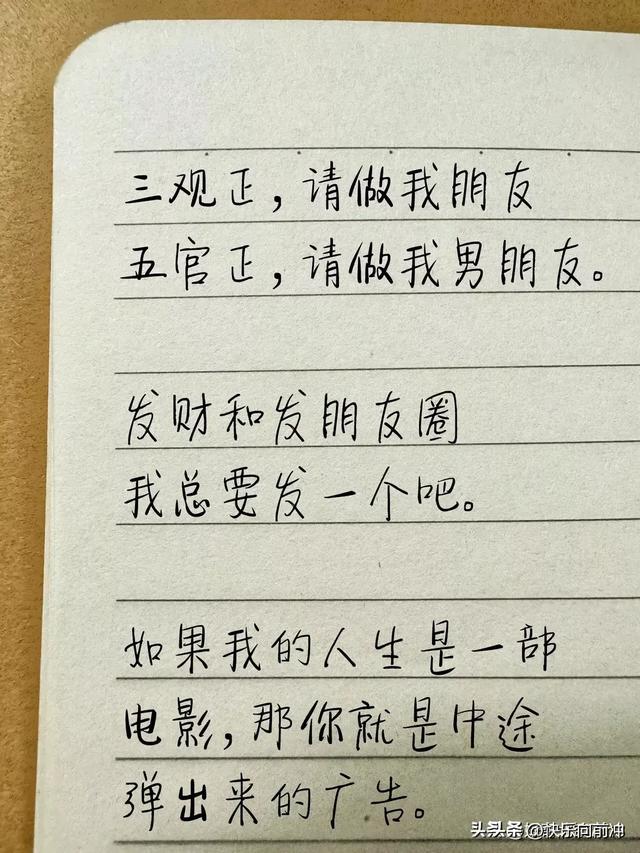 三观正，请做我朋友
五官正，请做我男朋友。
发财和发朋友圈
我总要发一个吧。
如果我的人生是一部
电影，那你就是中途
弹出来的广告。
头条 @快乐向前冲